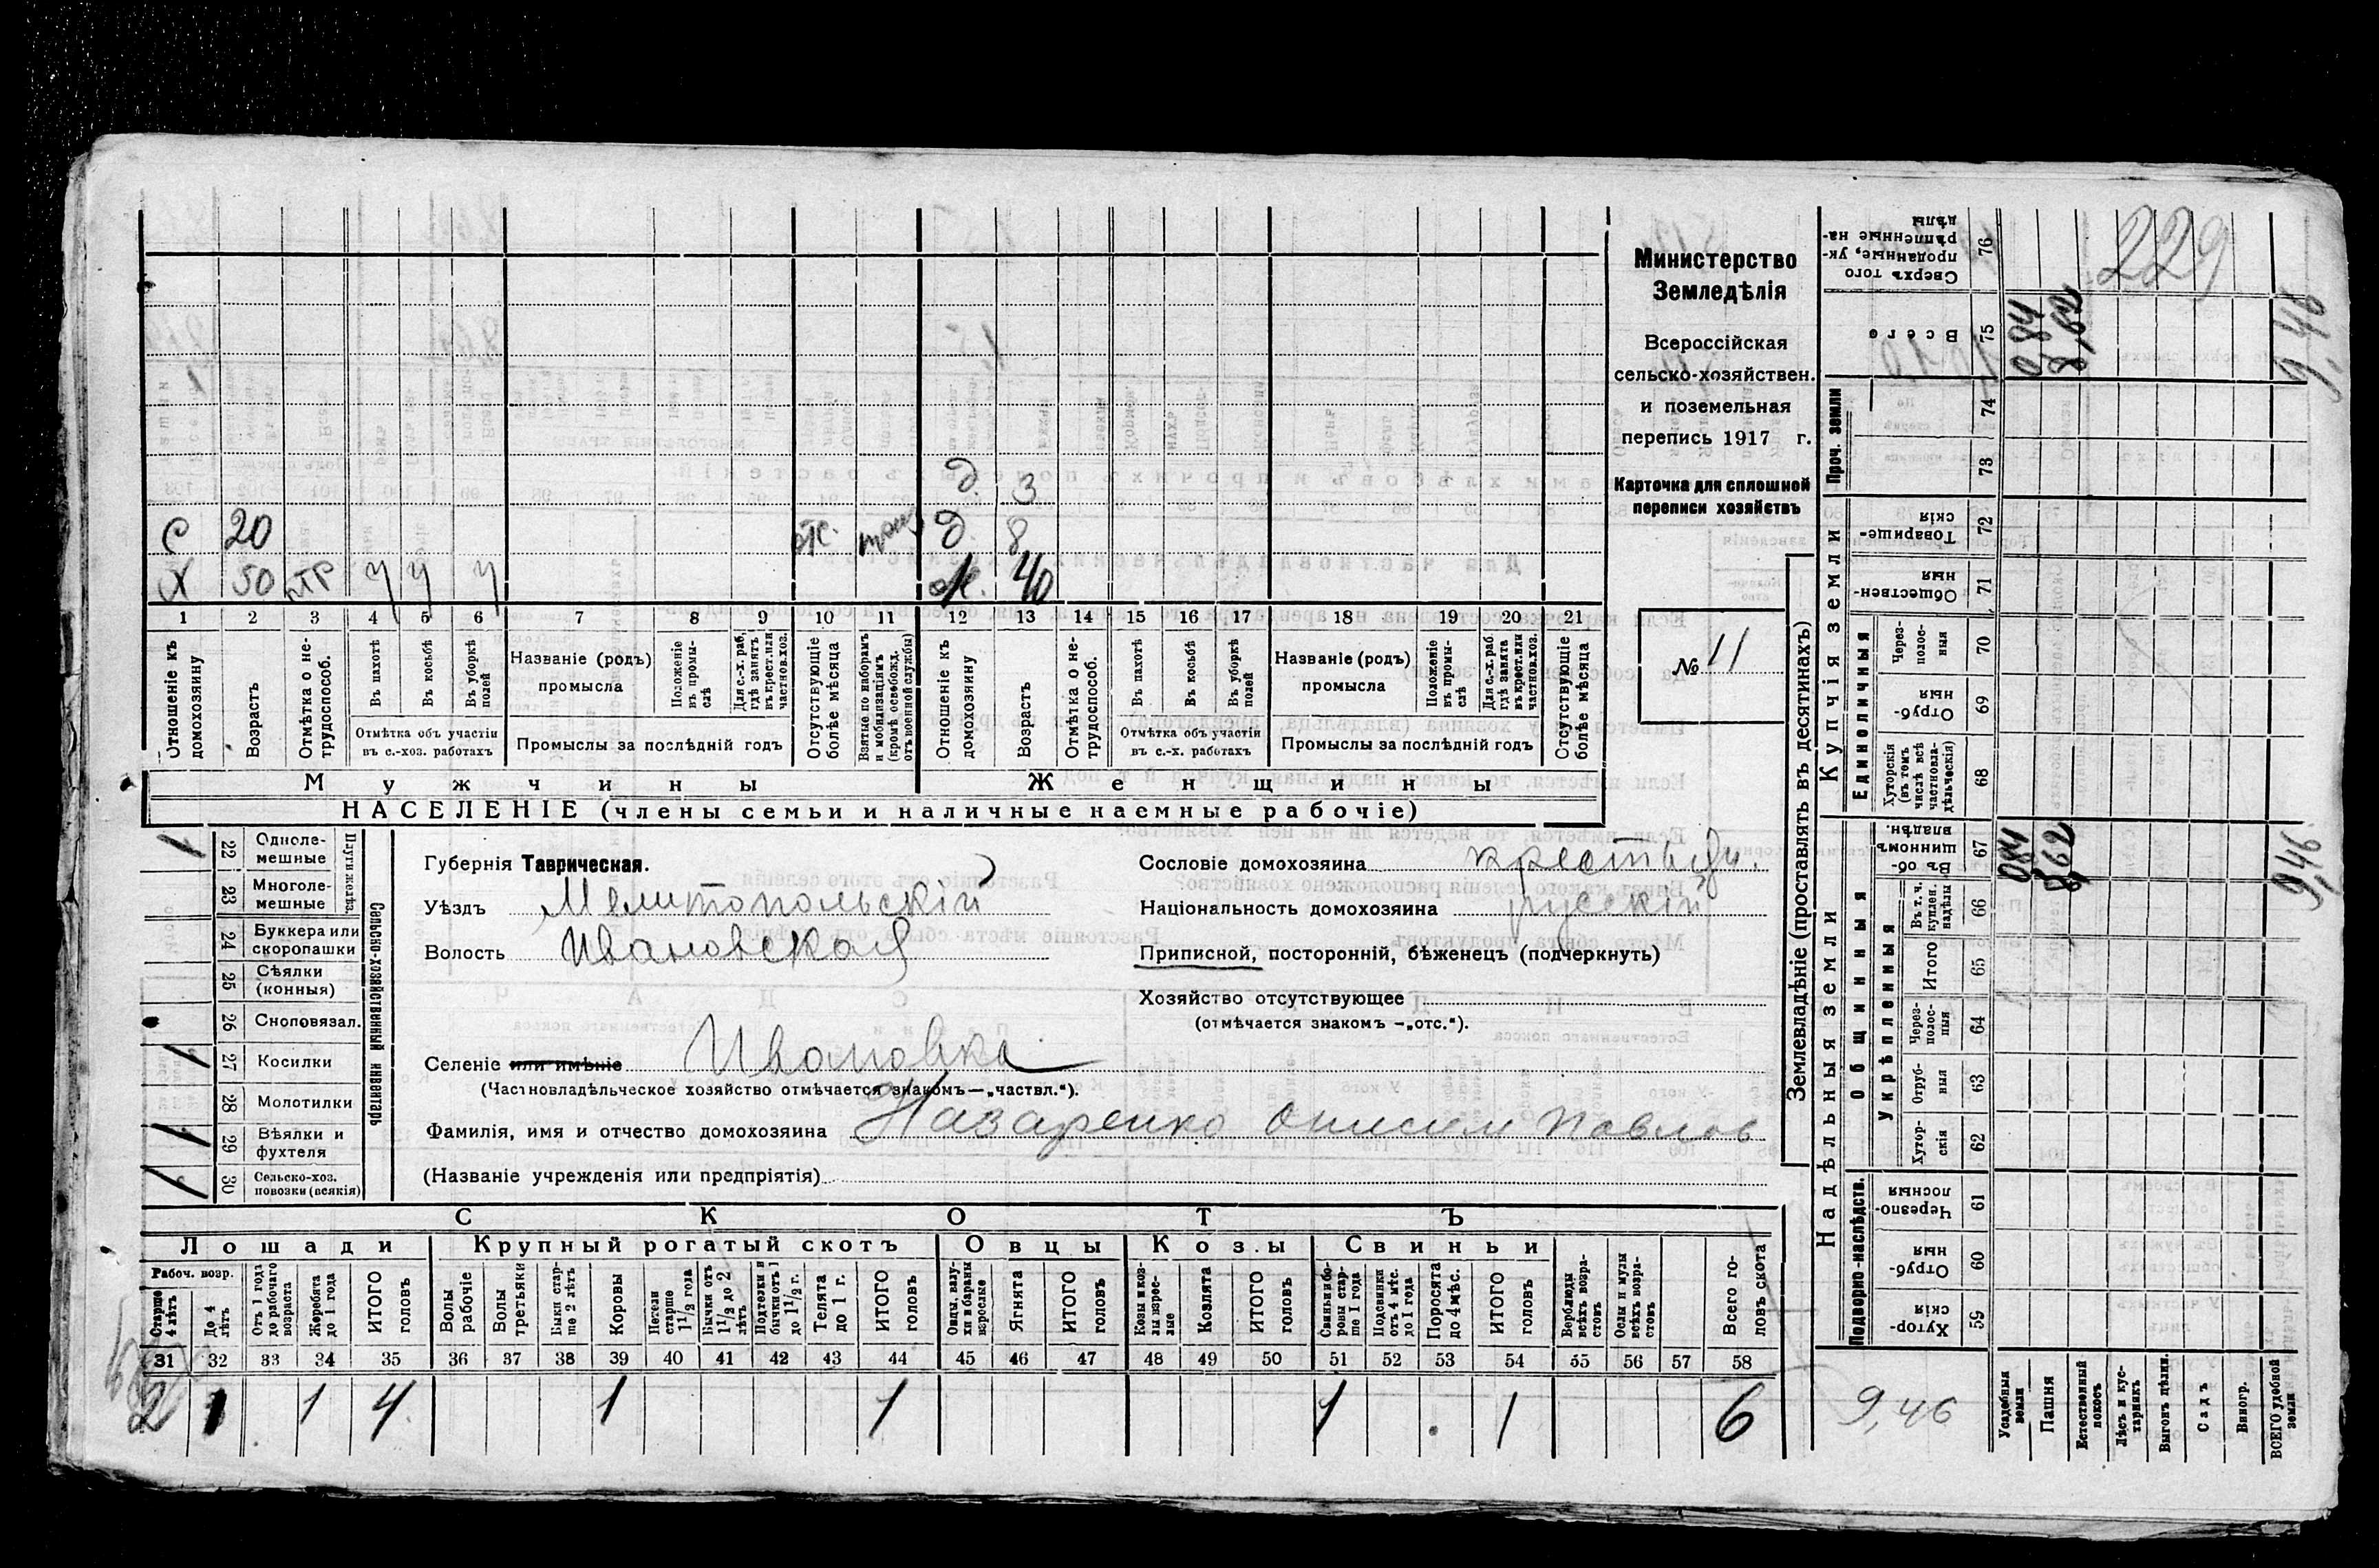 229
Министерство
Земледѣлія
Всероссійская
сельско-хозяйствен.
и поземельная
перепись 1917 г.
Карточка для сплошной
переписи хозяйствъ
№ 11
Д. 3
С 20 отс. Д. 8
Х 50 У У У Ж. 40
1 2 3 4 5 6 7 8 9 10 11 12 13 14 15 16 17 18 19 20 21
Отношеніе къ домохозяину
Возрастъ
Отмѣтка о нетрудоспособ.
Въ пахотѣ
Въ косьбѣ
Въ уборкѣ полей
Отмѣтка объ участіи
въ с.-хоз. работахъ
Названіе (родъ)
промысла
Положеніе въ промыслѣ
Для с.-х. раб. гдѣ занятъ въ крест. или частнов. хоз.
Промыслы за послѣдній годъ
Отсутствующіе болѣе мѣсяца
Взятые по наборамъ и мобилизаціямъ (кромѣ освобожд. отъ военной службы)
Отношеніе къ домохозяину
Возрастъ
Отмѣтка о нетрудоспособ.
Въ пахотѣ
Въ косьбѣ
Въ уборкѣ полей
Отмѣтка объ участіи
въ с.-х. работахъ
Названіе (родъ)
промысла
Положеніе въ промыслѣ
Для с.-х. раб. гдѣ занята въ крест. или частнов. хоз.
Промыслы за послѣдній годъ
Отсутствующіе болѣе мѣсяца
Мужчины Женщины
НАСЕЛЕНІЕ (члены семьи и наличные наемные рабочіе)
Сельско-хозяйственный инвентарь
Плуги желѣз.
1 22 Одноле-
мешные
23 Многоле-
мешные
24 Буккера или
скоропашки
25 Сѣялки
(конныя)
26 Сноповязал.
1 27 Косилки
28 Молотилки
1 29 Вѣялки и
фухтеля
1 30 Сельско-хоз.
повозки (всякія)
Губернія Таврическая.
Уѣздъ Мелитопольскій
Волость Ивановская
Сословіе домохозяина крестьян.
Національность домохозяина русскій
Приписной, посторонній, бѣженецъ (подчеркнуть)
Хозяйство отсутствующее
(отмѣчается знакомъ —„отс.“).
Селеніе или имѣніе Ивановка
(Частновладѣльческое хозяйство отмѣчается знакомъ—„частвл.“).
Фамилія, имя и отчество домохозяина Назаренко Онисим Павлов
(Названіе учрежденія или предпріятія)
СКОТЪ
Лошади Крупный рогатый скотъ Овцы Козы Свиньи
Рабоч. возр.
Старше 4 лѣтъ
До 4 лѣтъ
Отъ 1 года до рабочаго возраста
Жеребята до 1 года
ИТОГО головъ
Волы рабочіе
Волы третьяки
Быки старше 2 лѣтъ
Коровы
Нетели старше 1½ года
Бычки отъ 1½ до 2 лѣтъ
Подтелки и бычки отъ 1 до 1½ г.
Телята до 1 г.
ИТОГО головъ
Овцы, валухи и бараны взрослые
Ягнята
ИТОГО головъ
Козы и козлы взрослые
Козлята
ИТОГО головъ
Свиньи и боровы старше 1 года
Подсвинки отъ 4 мѣс. до 1 года
Поросята до 4 мѣс.
ИТОГО головъ
Верблюды всѣхъ возрастовъ
Ослы и мулы всѣхъ возрастовъ
Всего головъ скота
31 32 33 34 35 36 37 38 39 40 41 42 43 44 45 46 47 48 49 50 51 52 53 54 55 56 57 58
2 1 1 4 1 1 1 1 6
Землевладѣніе (проставлять въ десятинахъ)
Сверхъ того проданные, укрѣпленные надѣлы 76
Всего 75 0,84 8,62 9,46
Проч. земли
74
73
Купчія земли
Товарищескія 72
Общественныя 71
Единоличныя
Черезполосныя 70
Отрубныя 69
Хуторскія (въ томъ числѣ всѣ частновладѣльческія) 68
Надѣльныя земли
Общинныя
Въ общинномъ владѣн. 67 0,84 8,62 9,46
Укрѣпленныя
Въ т. ч. куплен. надѣлы 66
Итого 65
Черезполосныя 64
Отрубныя 63
Хуторскія 62
Подворно-наслѣдств.
Черезполосныя 61
Отрубныя 60
Хуторскія 59
9,46
Усадебныя земли
Пашня
Естественный покосъ
Лѣсъ и кустарникъ
Выгонъ дѣлим.
Садъ
Виногр.
ВСЕГО удобной земли